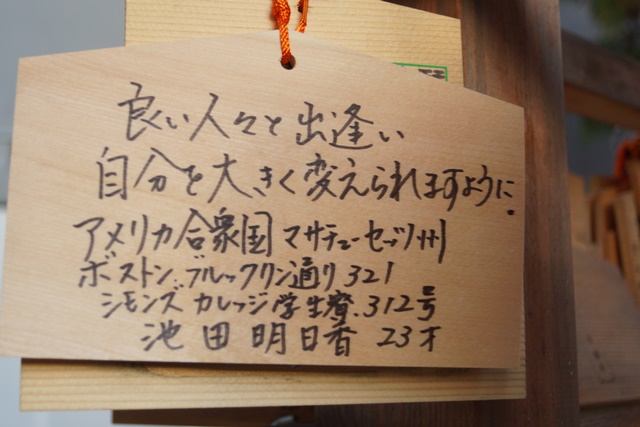 良い人々と出逢い
自分を大きく変えられますように.
アメリカ合衆国マサチューセッツ州
ボストン、ブルックリン通り321
シモンズカレッジ学生寮.312号
池田明日香 23才